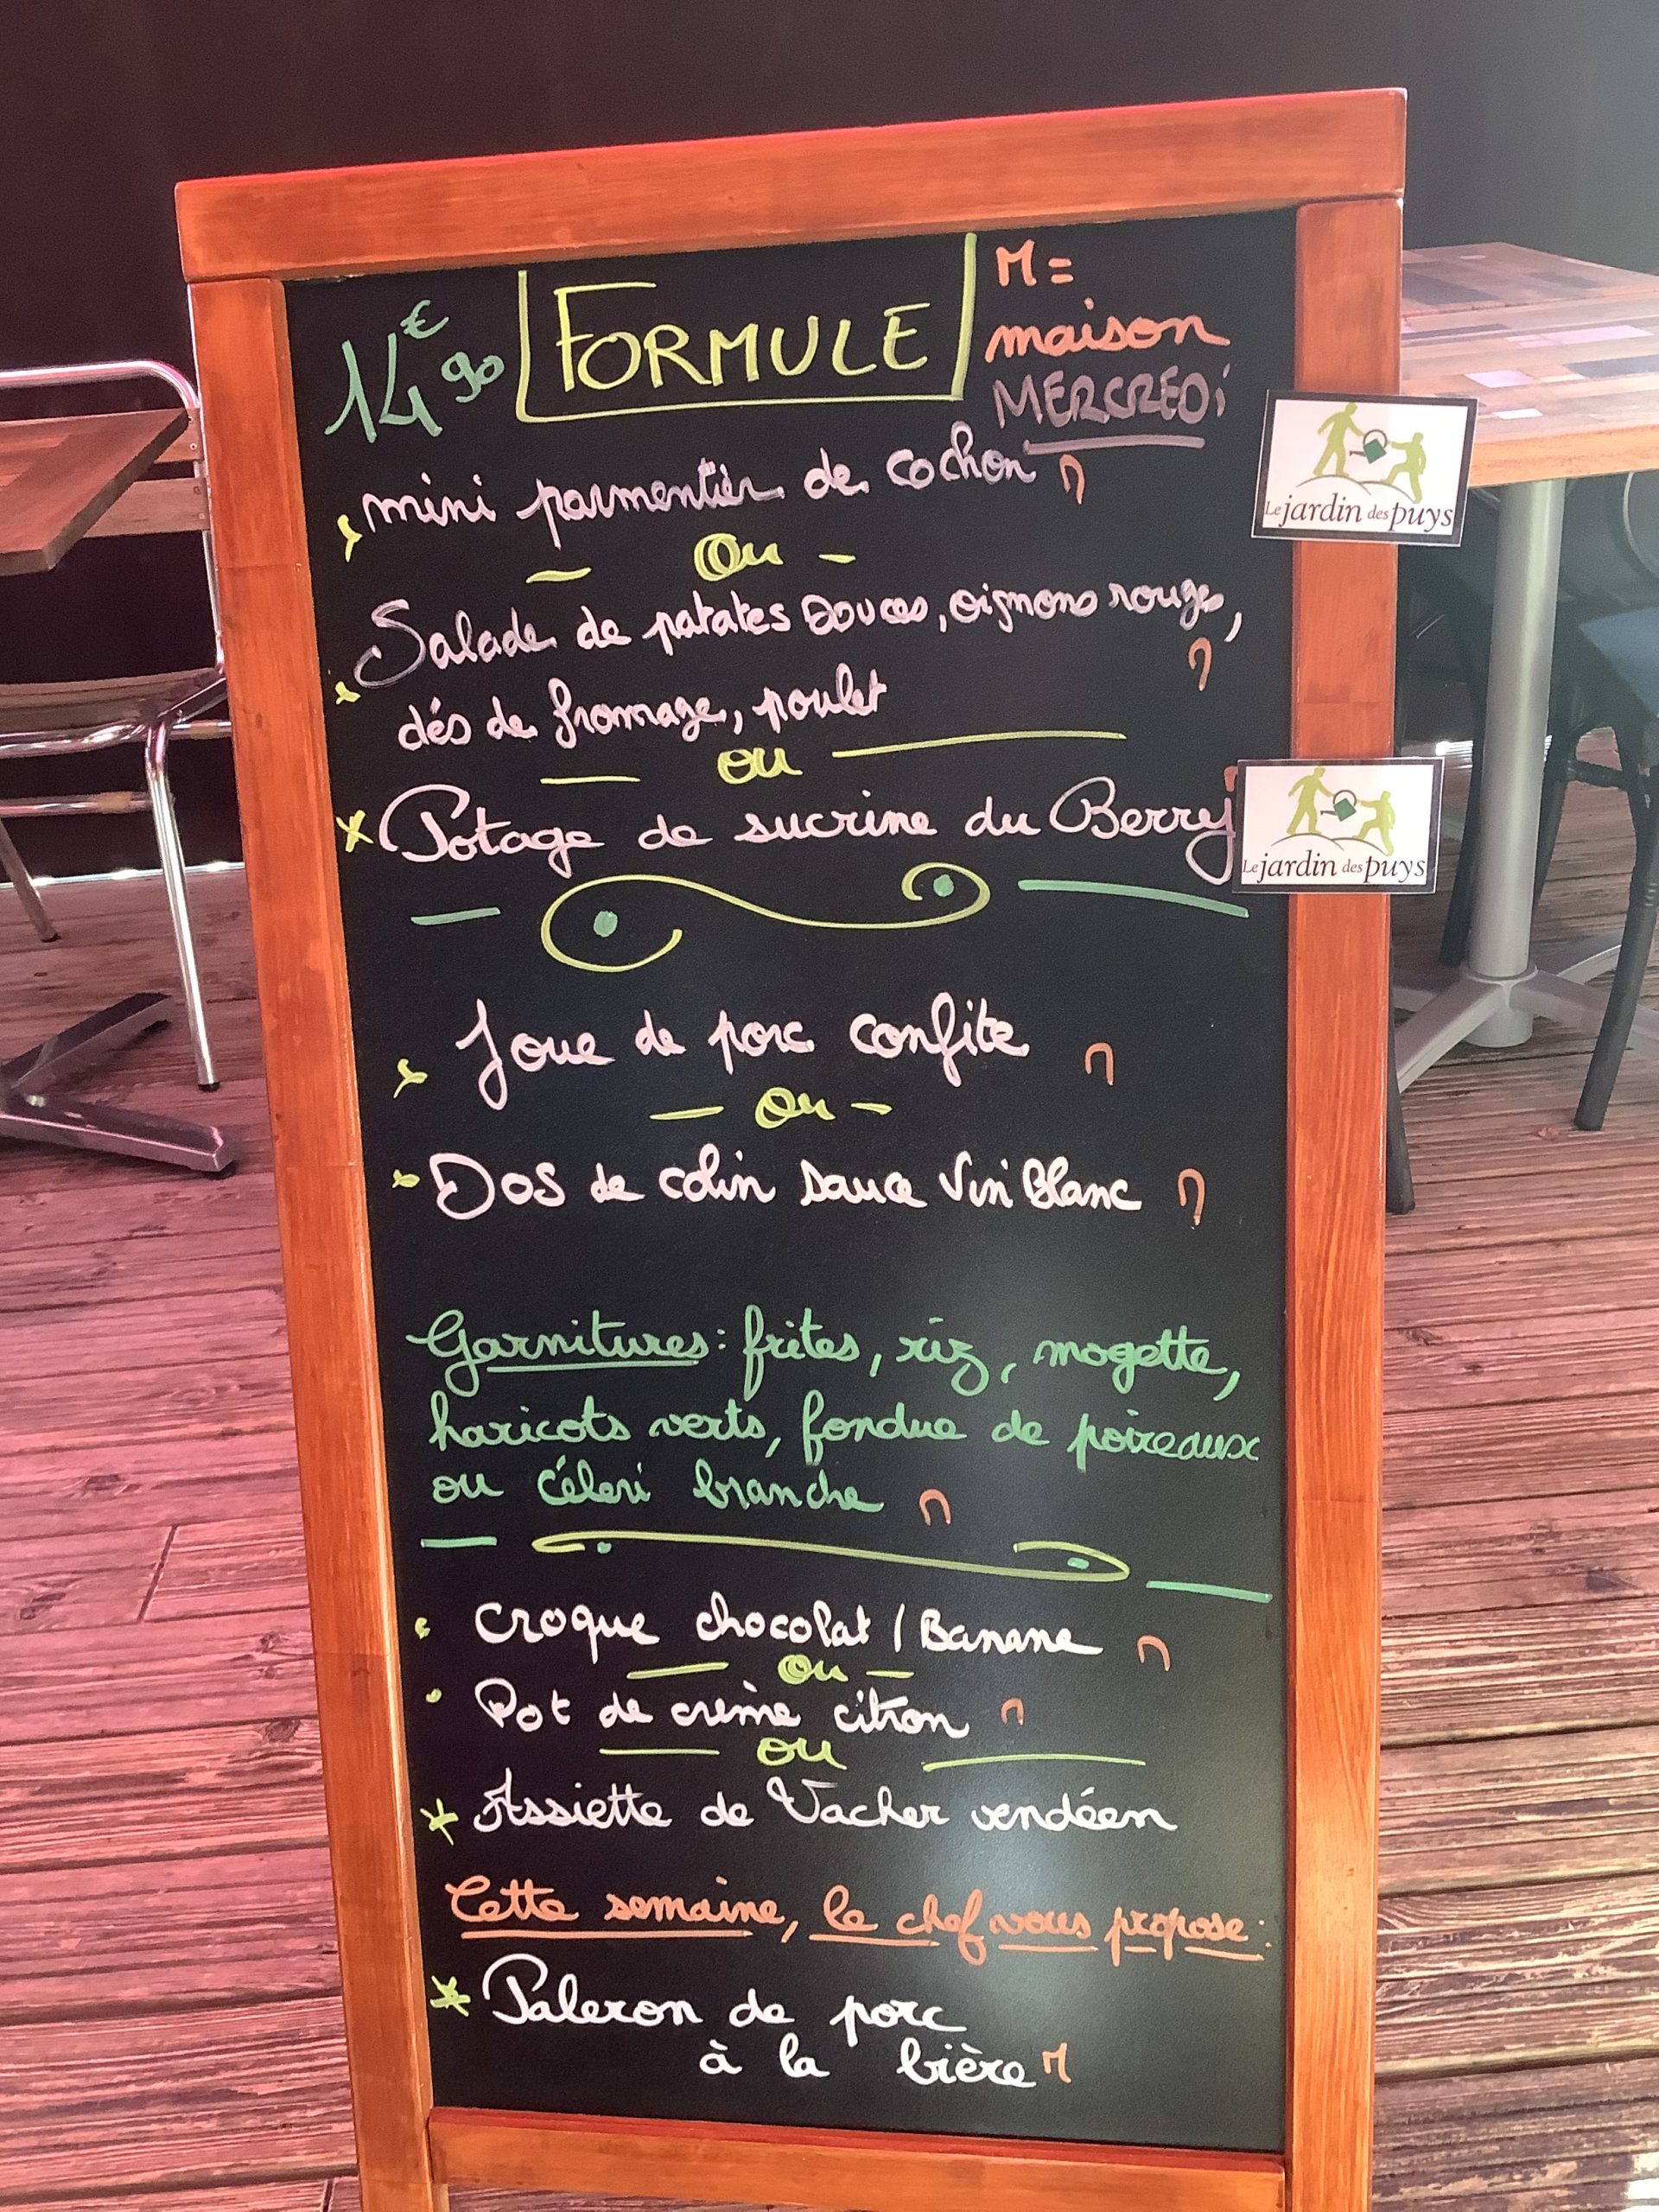 14€90 FORMULE
M =
maison
MERCREDi
mini parmentier de cochon M
Ou
Salade de patates douces, oignons rouges, M
dés de fromage, poulet
ou
Potage de sucrine du Berry
Le jardin des puys
Le jardin des puys
Joue de porc confite M
Ou
Dos de colin sauce Vin Blanc M
Garnitures : frites, riz, mogette,
haricots verts, fondue de poireaux
ou céleri branche M
Croque chocolat / Banane M
ou
Pot de crème citron M
ou
Assiette de Vacher vendéen
Cette semaine, le chef vous propose :
Paleron de porc
à la bière M